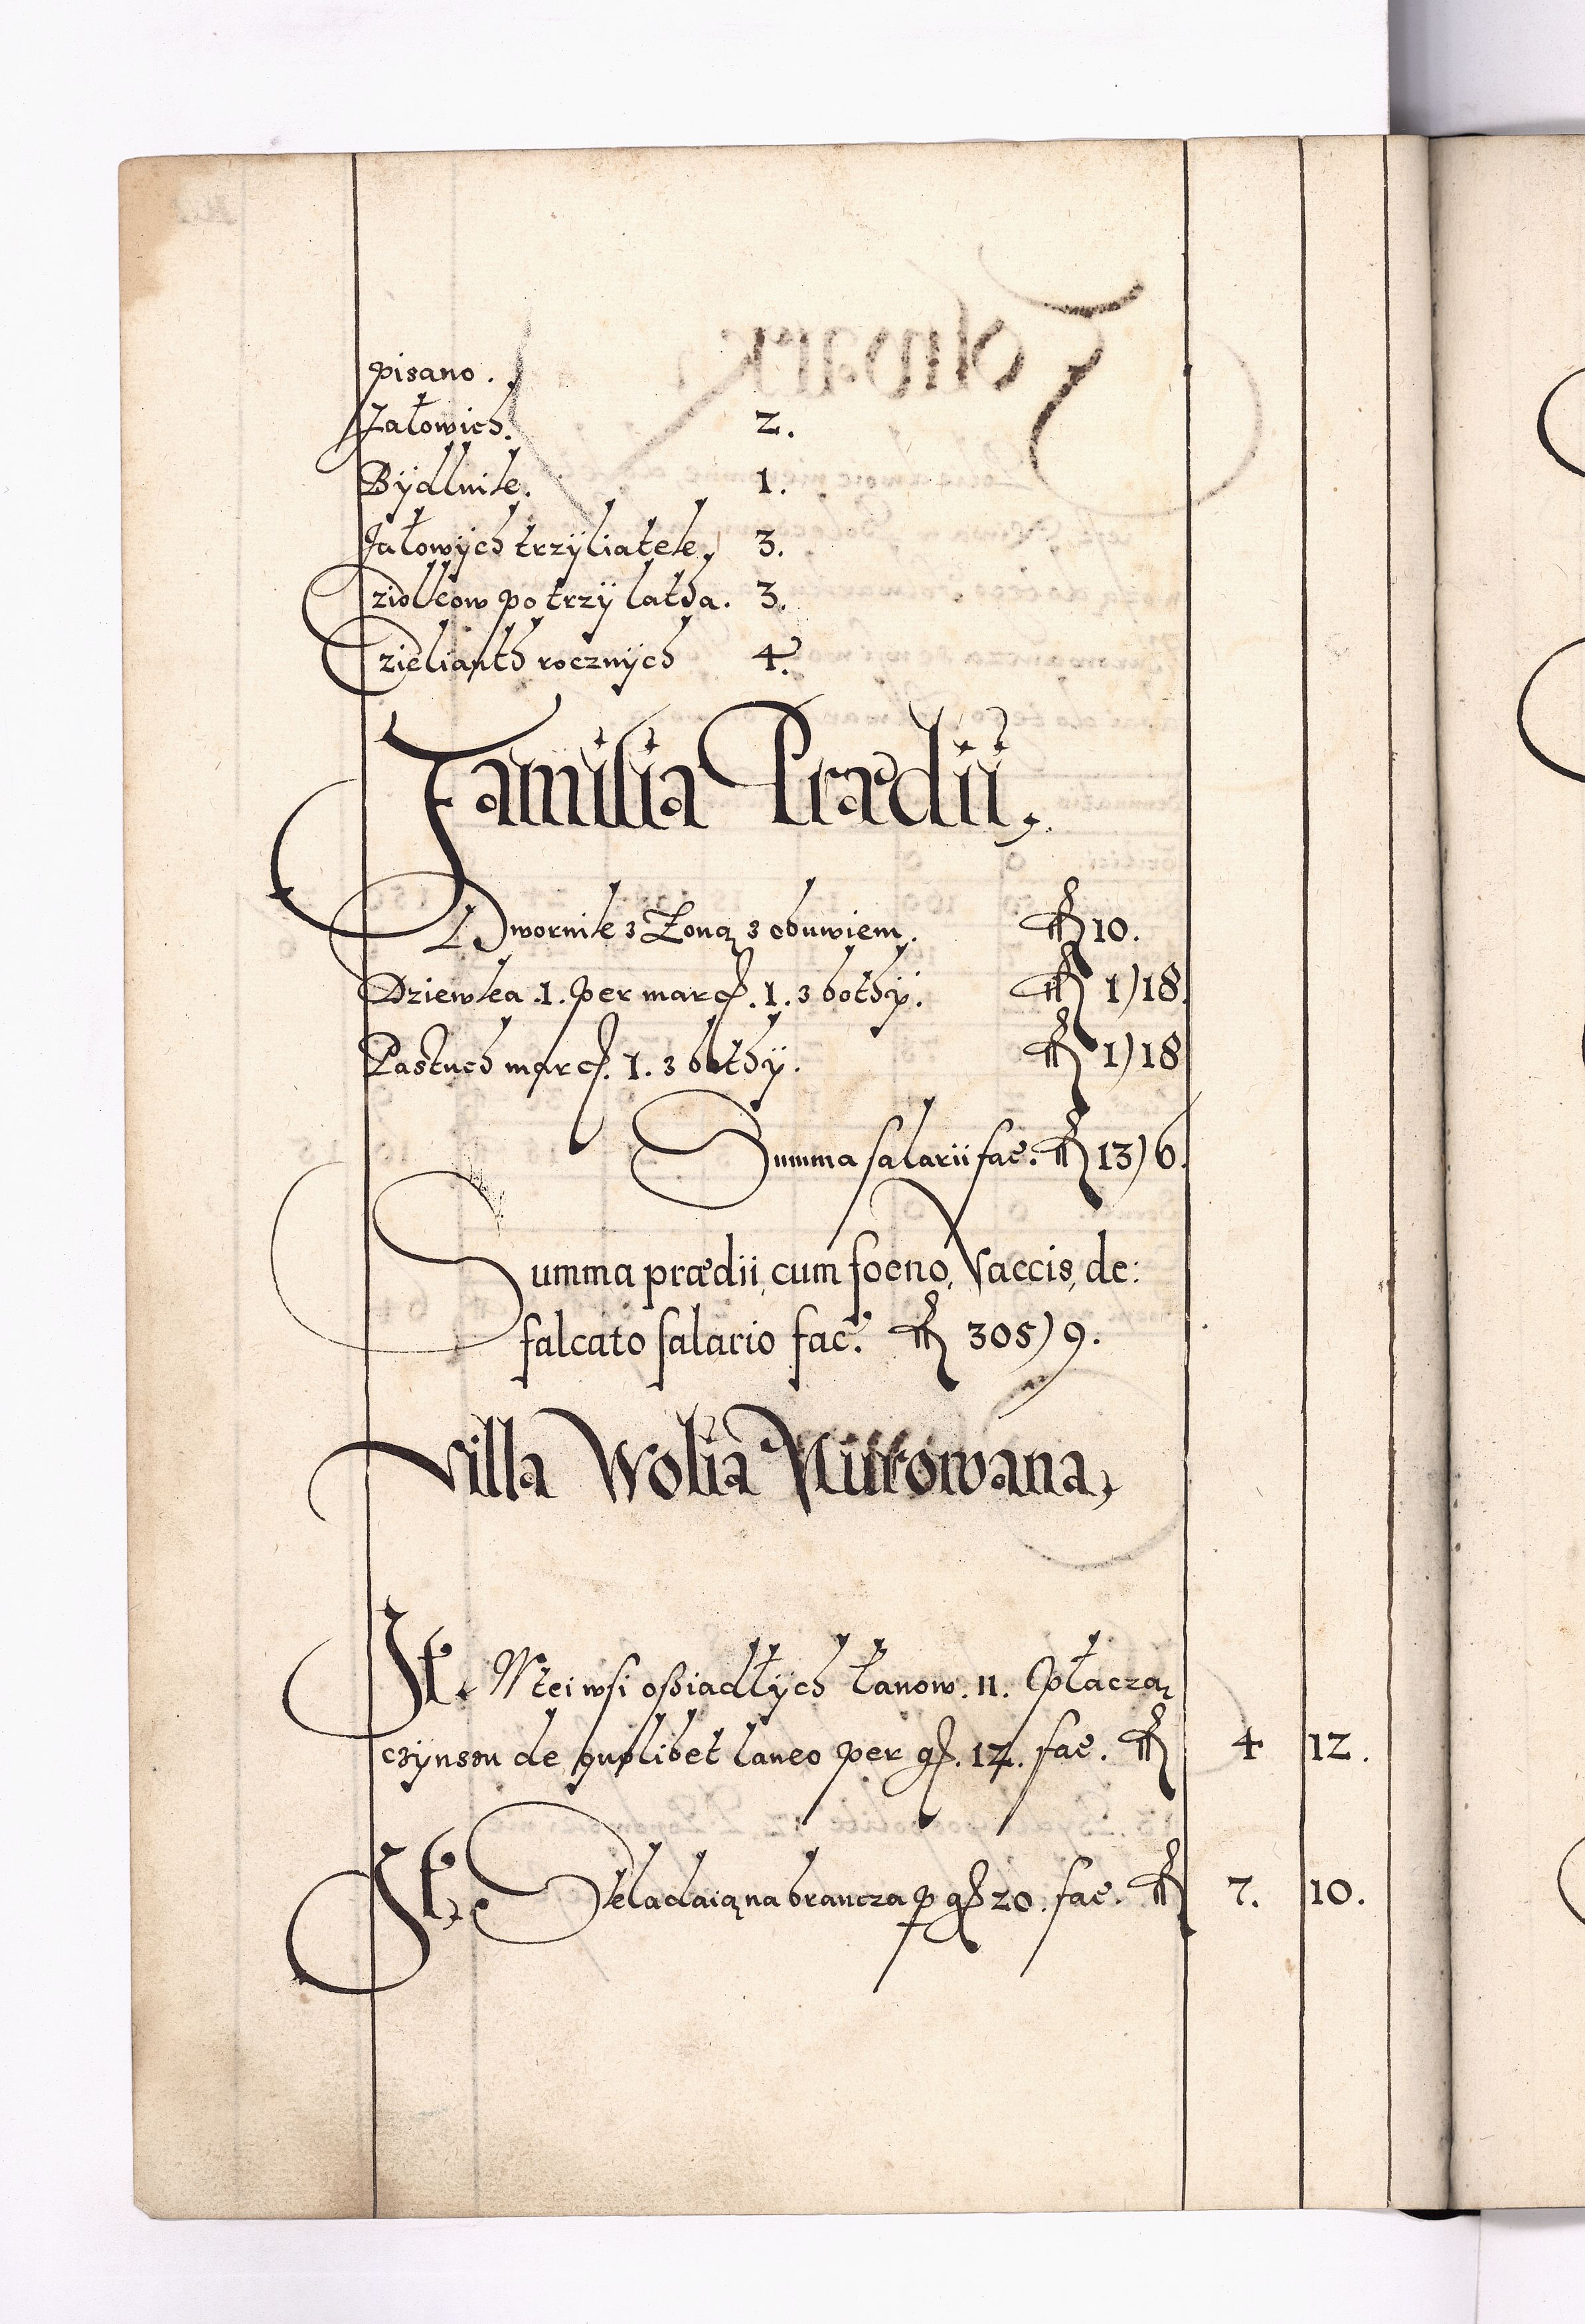 pisano.
Jałowich. 2.
Bydlnik. 1.
Jałowych trzyliatek. 3.
Ciołkow po trzy latha. 3.
Cielianth rocznych 4.
Familia Prædii,
Dwornik z Zoną z obuwiem. 10.
Dziewka .1. per marc. 1. z bothy. 1)18.
Pastuch marc. 1. z bothy. 1)18
Summa salarii fac. 13)6.
Summa prædii, cum foeno, Vaccis, de:
falcato salario fac. 305)9.
Villa Wolia
It. W tei wsi ossiadłych łanow. 11. Płaczą
czynszu de quolibet laneo per gr. 12. fac. 4 12.
It. Składaią na brancza p gr 20. fac. 7. 10.